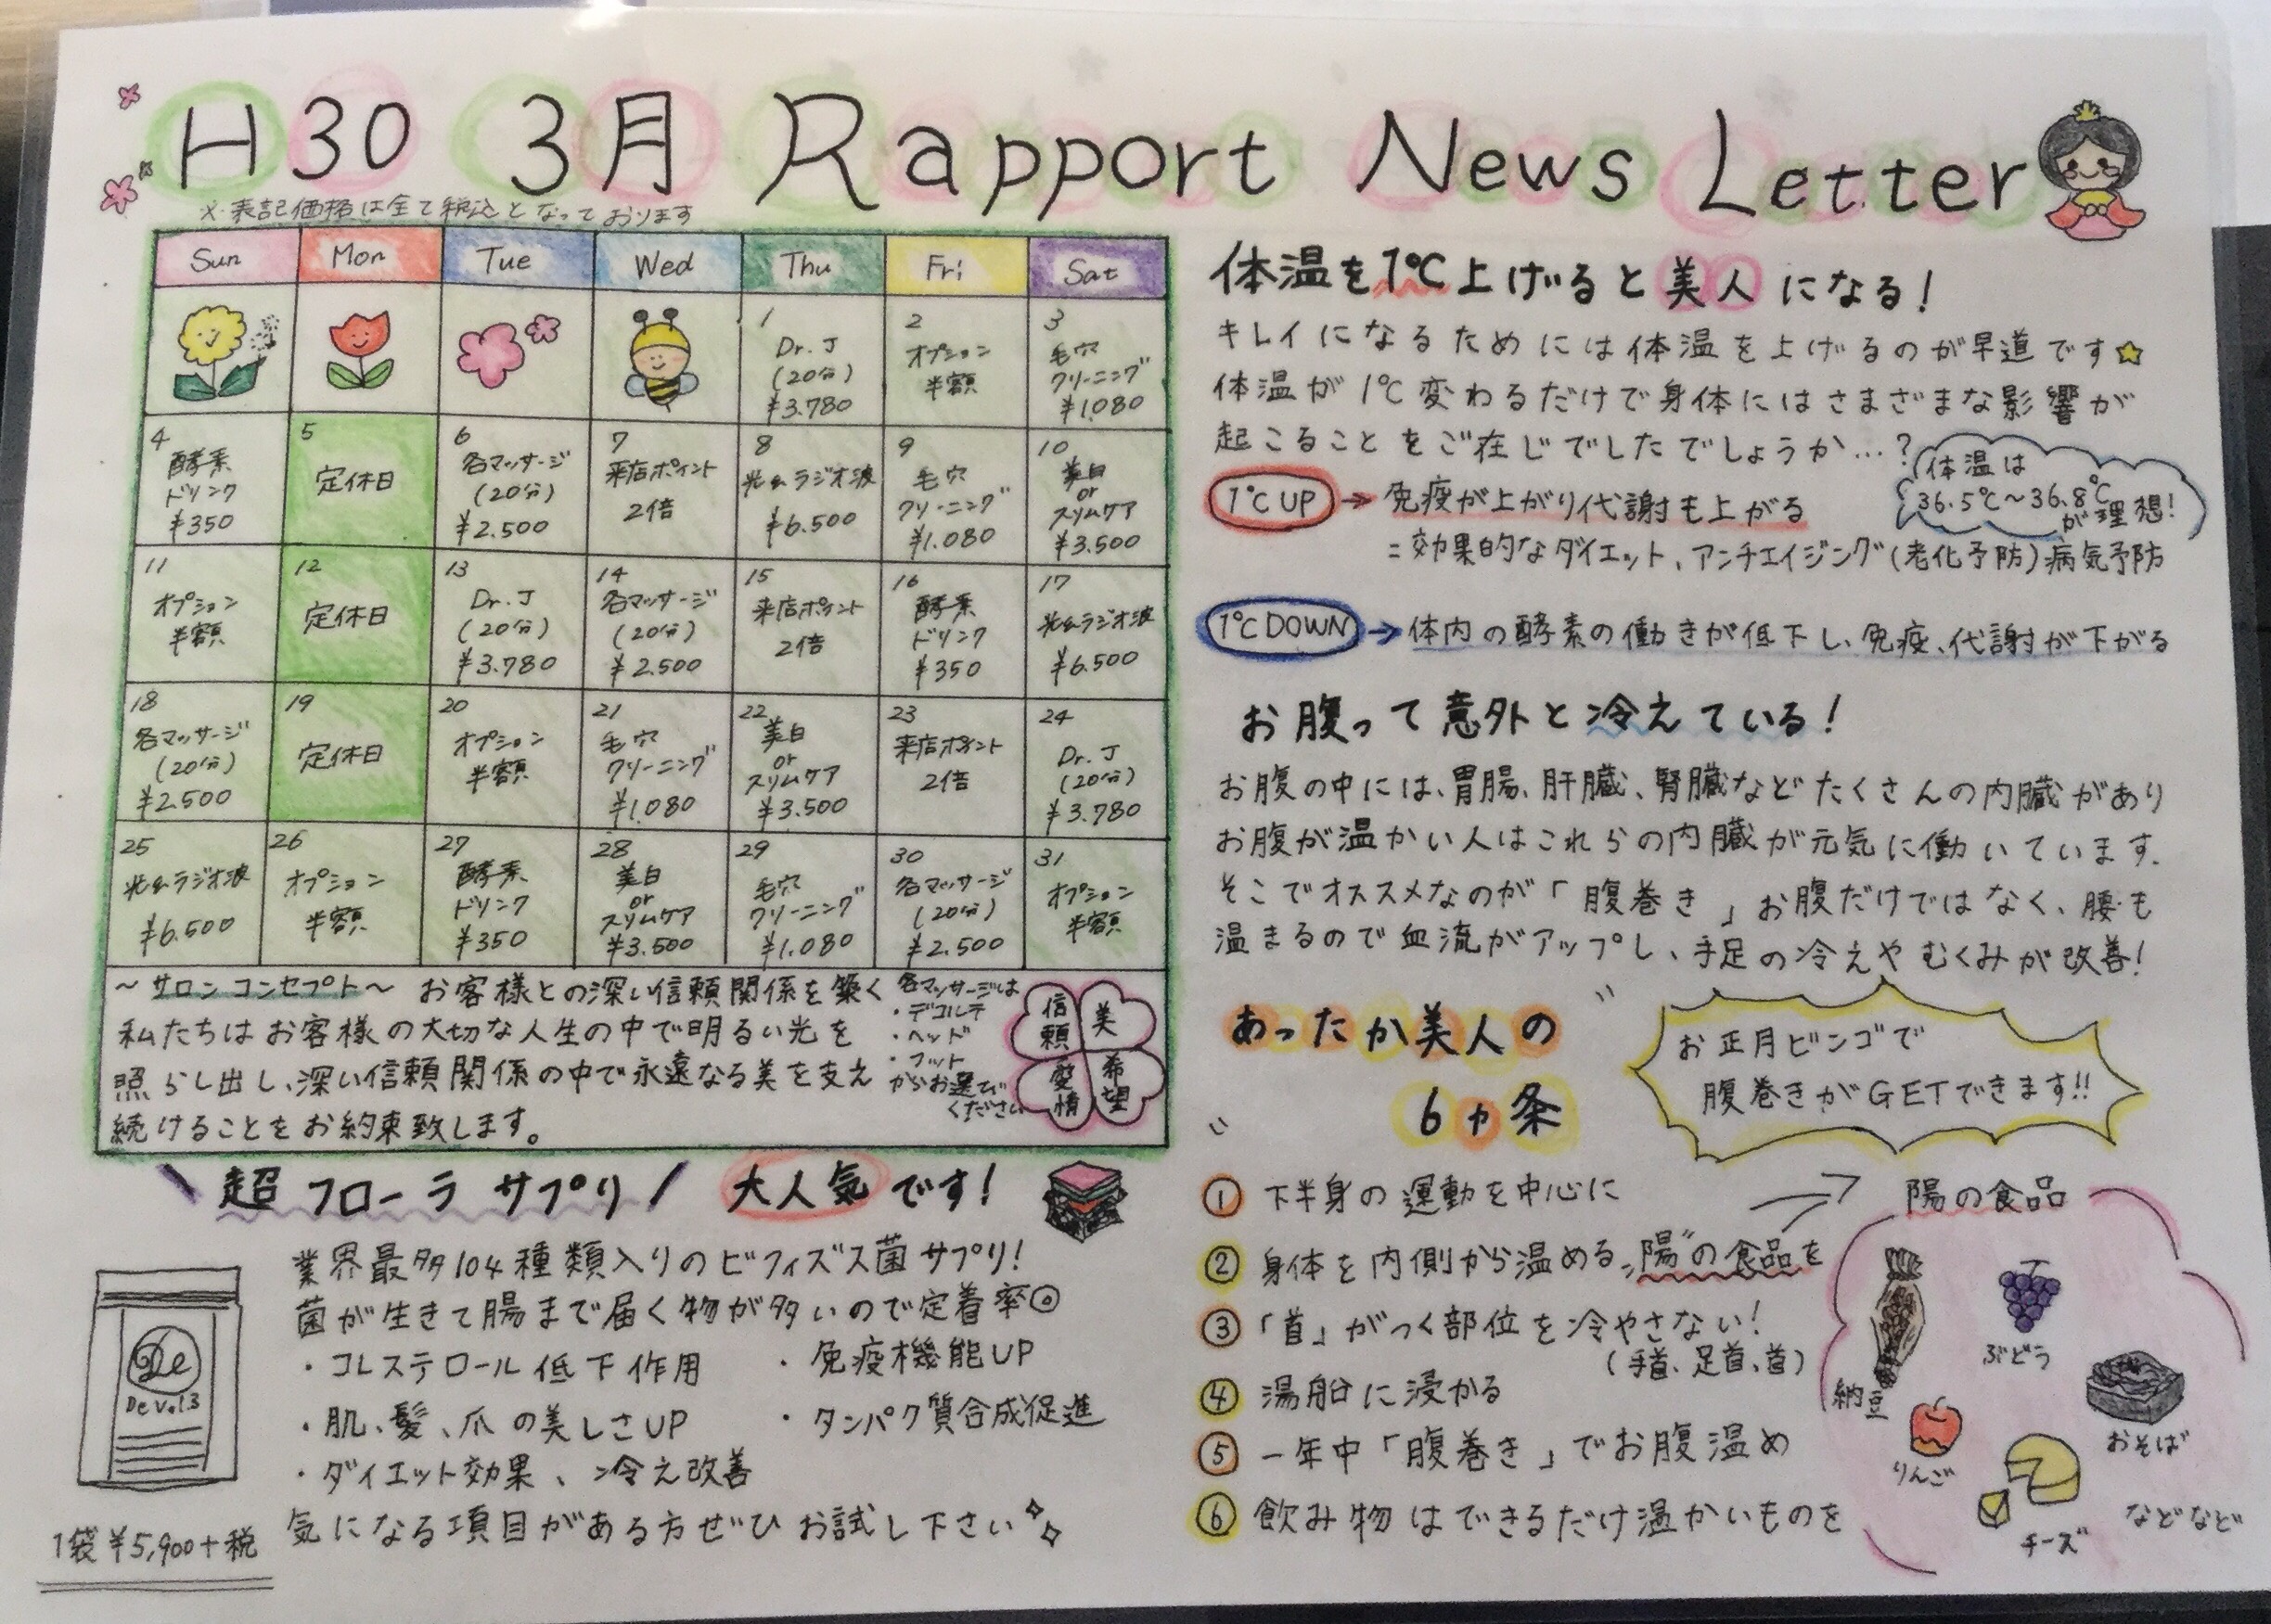 H30 3月 Rapport News Letter
※表記価格は全て税込となっております
Sun Mon Tue Wed Thu Fri Sat
1
Dr.J
(20分)
¥3.780
2
オプション
半額
3
毛穴
クリーニング
¥1.080
4
酵素
ドリンク
¥350
5
定休日
6
各マッサージ
(20分)
¥2.500
7
来店ポイント
2倍
8
光&ラジオ波
¥6.500
9
毛穴
クリーニング
¥1.080
10
美白
or
スリムケア
¥3.500
11
オプション
半額
12
定休日
13
Dr.J
(20分)
¥3.780
14
各マッサージ
(20分)
¥2.500
15
来店ポイント
2倍
16
酵素
ドリンク
¥350
17
光&ラジオ波
¥6.500
18
各マッサージ
(20分)
¥2.500
19
定休日
20
オプション
半額
21
毛穴
クリーニング
¥1.080
22
美白
or
スリムケア
¥3.500
23
来店ポイント
2倍
24
Dr.J
(20分)
¥3.780
25
光&ラジオ波
¥6.500
26
オプション
半額
27
酵素
ドリンク
¥350
28
美白
or
スリムケア
¥3.500
29
毛穴
クリーニング
¥1.080
30
各マッサージ
(20分)
¥2.500
31
オプション
半額
〜サロンコンセプト〜 お客様との深い信頼関係を築く
私たちはお客様の大切な人生の中で明るい光を
照らし出し、深い信頼関係の中で永遠なる美を支え
続けることをお約束致します。
各マッサージは
・デコルテ
・ヘッド
・フット
からお選び
ください
信頼
美
愛情
希望
\超フローラサプリ/ 大人気です!
業界最多104種類入りのビフィズス菌サプリ!
菌が生きて腸まで届く物が多いので定着率◎
・コレステロール低下作用 ・免疫機能UP
・肌、髪、爪の美しさUP ・タンパク質合成促進
・ダイエット効果、冷え改善
気になる項目がある方ぜひお試し下さい
De
De Vol.3
1袋¥5,900+税
体温を1℃上げると美人になる!
キレイになるためには体温を上げるのが早道です☆
体温が1℃変わるだけで身体にはさまざまな影響が
起こることをご在じでしたでしょうか…?
体温は
36.5℃〜36.8℃
が理想!
1℃UP → 免疫が上がり代謝も上がる
=効果的なダイエット、アンチエイジング(老化予防)病気予防
1℃DOWN → 体内の酵素の働きが低下し、免疫、代謝が下がる
お腹って意外と冷えている!
お腹の中には、胃腸、肝臓、腎臓などたくさんの内臓があり
お腹が温かい人はこれらの内臓が元気に働いています.
そこでオススメなのが「腹巻き」お腹だけではなく、腰も
温まるので血流がアップし、手足の冷えやむくみが改善!
"あったか美人の
6ヵ条"
お正月ビンゴで
腹巻きがGETできます!!
① 下半身の運動を中心に
② 身体を内側から温める"陽"の食品を
③「首」がつく部位を冷やさない!
(手首、足首、首)
④ 湯船に浸かる
⑤ 一年中「腹巻き」でお腹温め
⑥ 飲み物はできるだけ温かいものを
陽の食品
納豆
ぶどう
おそば
りんご
チーズ
などなど